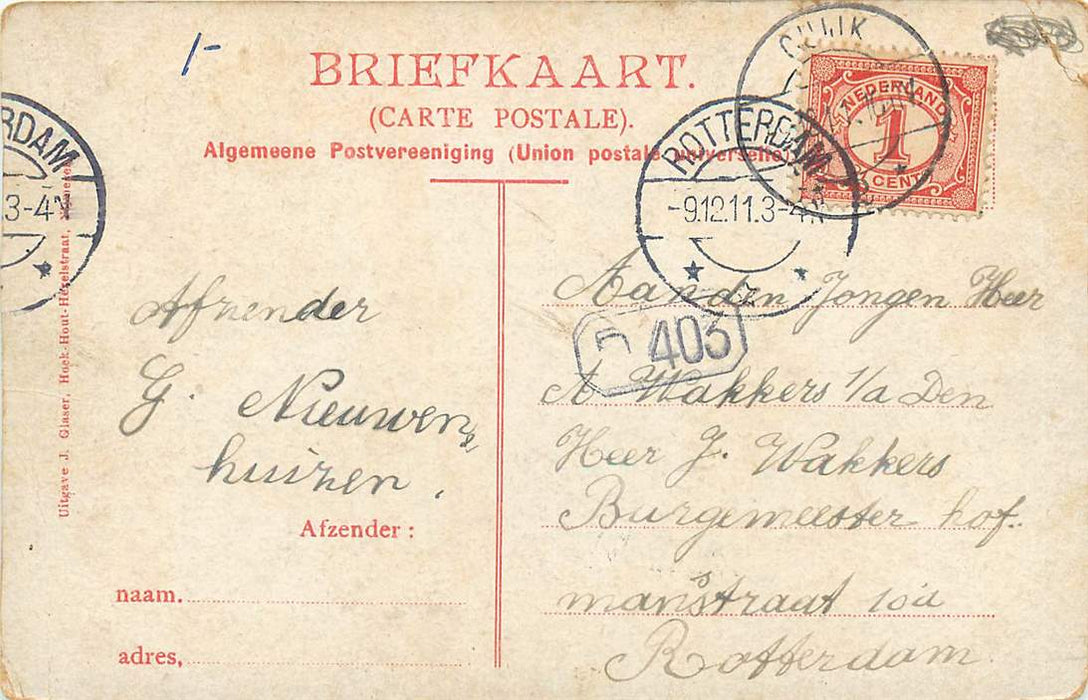 1-
BRIEFKAART.
(CARTE POSTALE).
Algemeene Postvereeniging (Union postale universelle)
NEDERLAND
1
CENT
ROTTERDAM
-9.12.11.3-4N
RDAM
3-4N
Uitgave J. Glaser, Hoek-Hout-Hezelstraat,
403
Afzender
G. Nieuwen
huizen.
Afzender:
naam.
adres,
Aan den Jongen Heer
A Wakkers 1/a Den
Heer J. Wakkers
Burgemeester hof.
manstraat 10a
Rotterdam